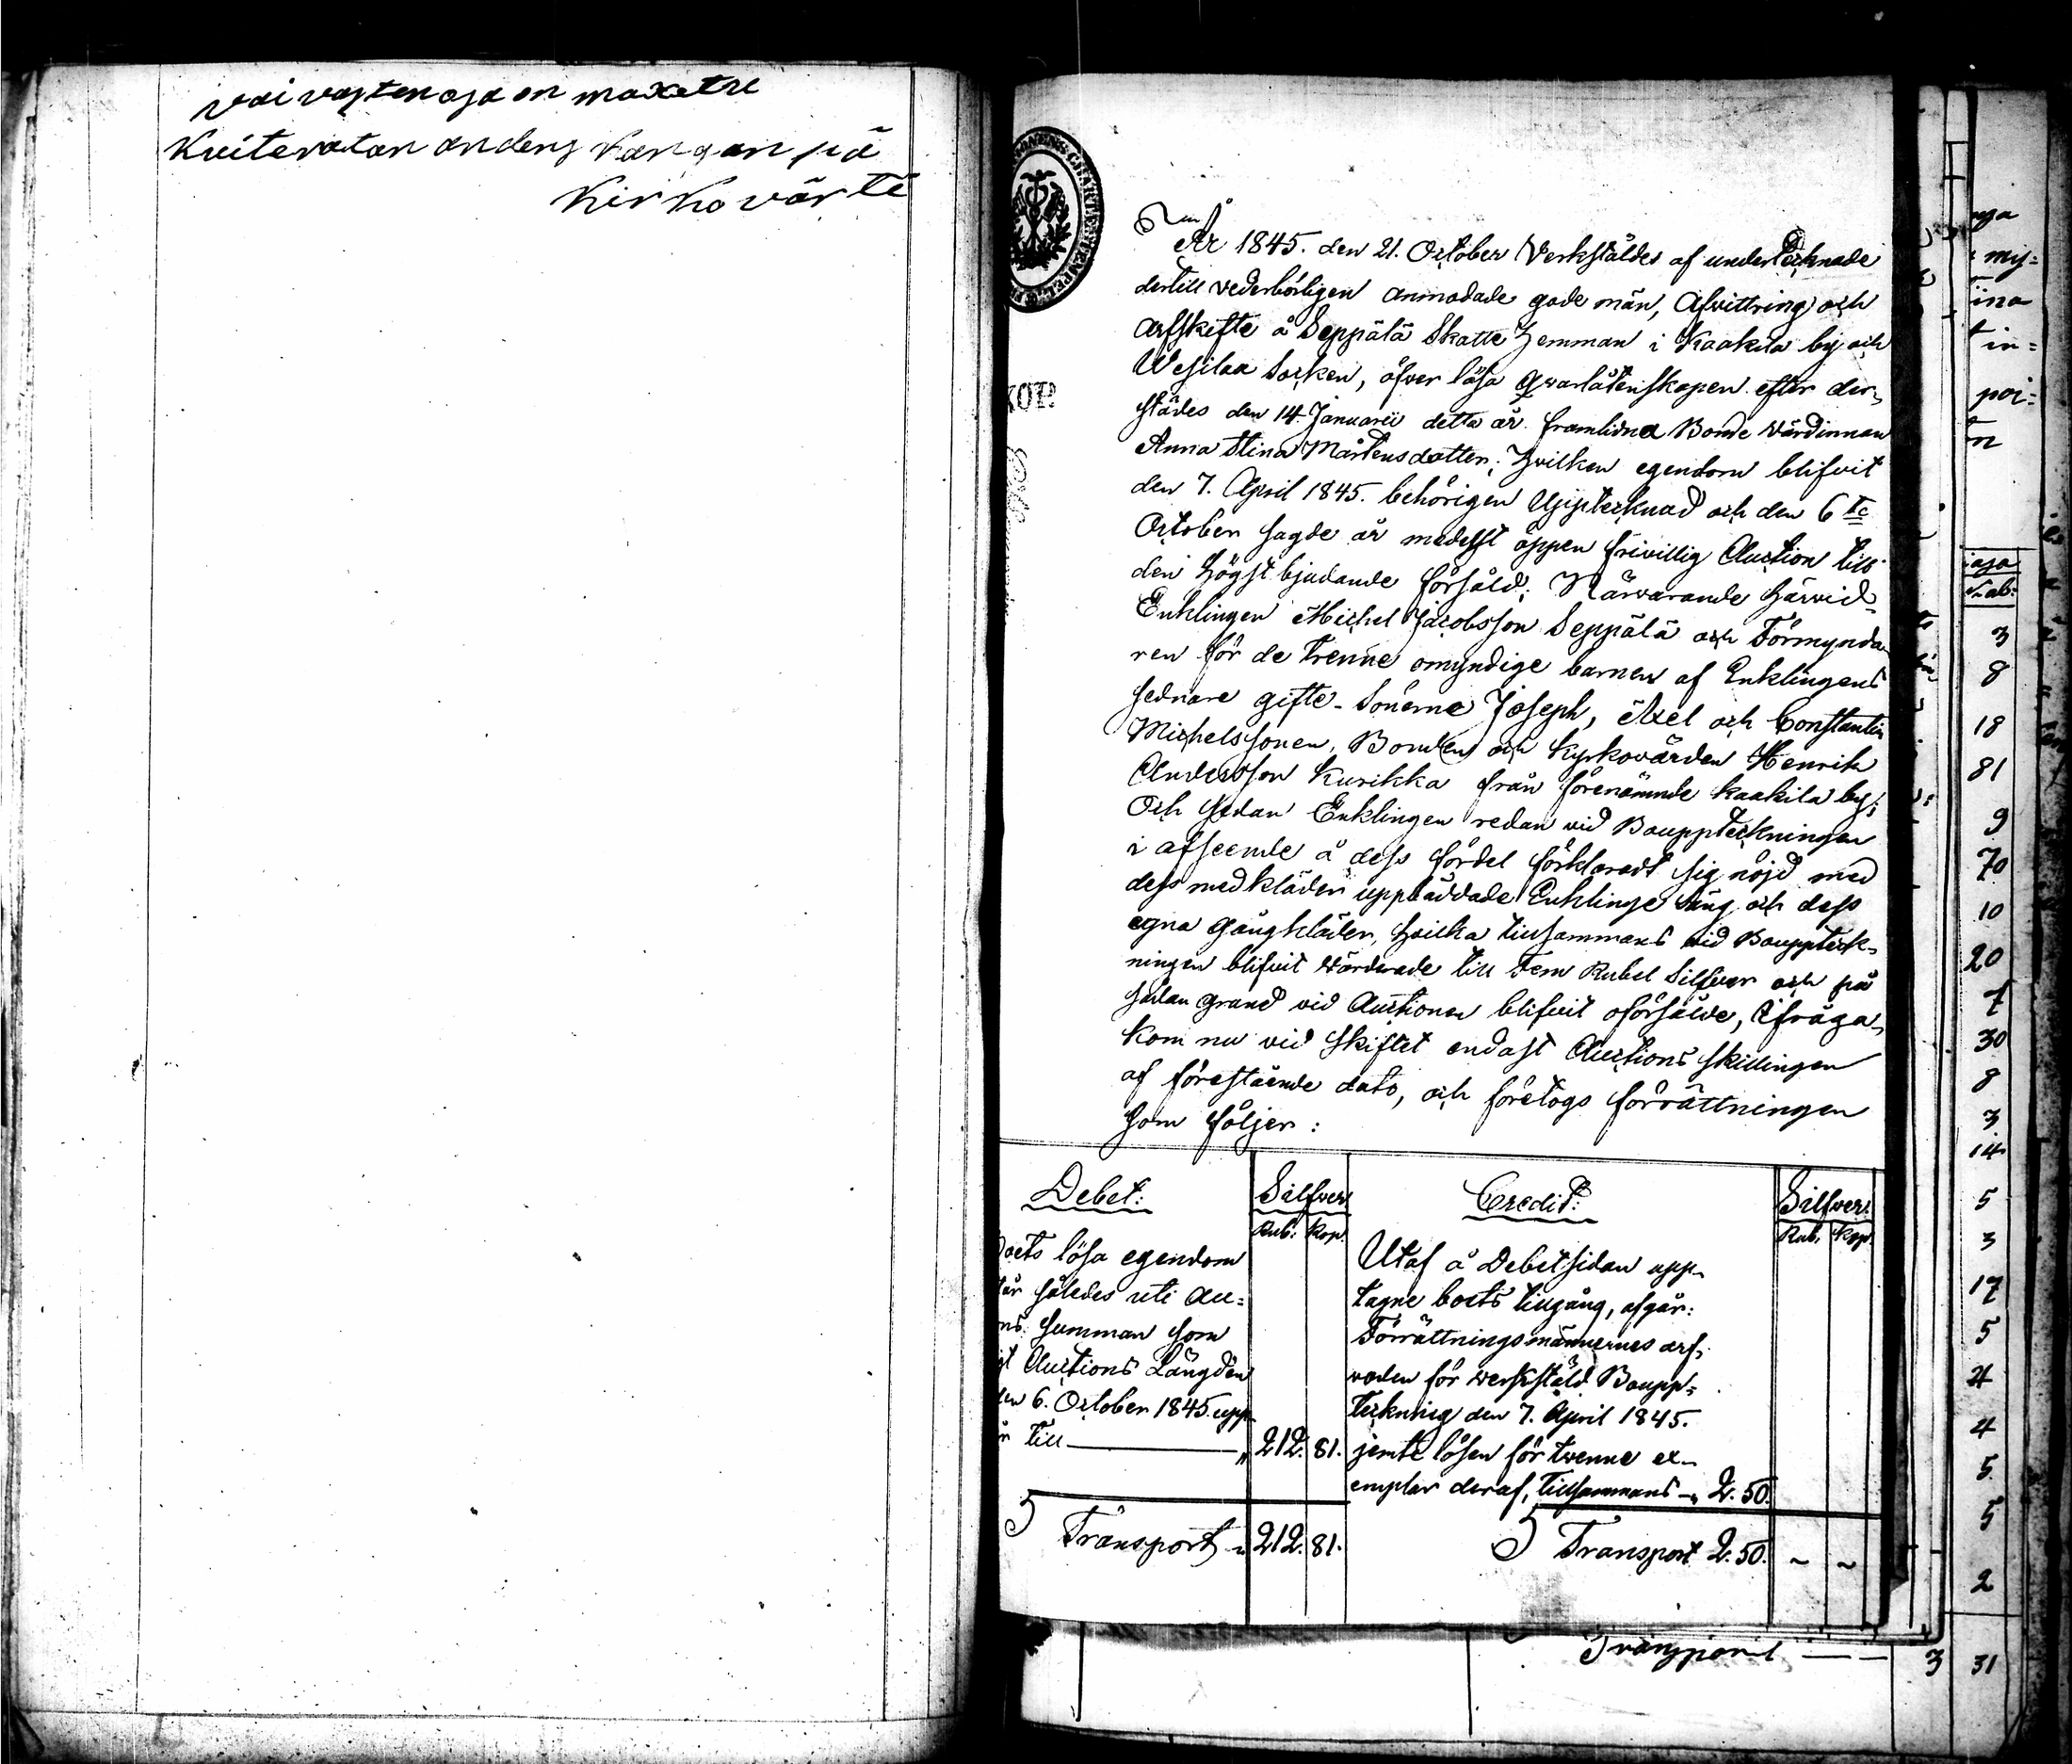 vaivasten osa on maxettu
Kviteratan anders Kangan pä
Kirko värti
År 1845. den 21. October Verkställdes af undertecknade
dertill vederbörligen anmodade gode män, Afvittring och
Arfskifte å Seppälä Skatte Hemman i Kaakila by och
Wesilax Socken, öfver lösa Qvarlåtenskapen efter der„
städes den 14. Januarii detta år framlidna Bonde värdinnan
Anna Stina Mårtensdotter; Hvilken egendom blifvit
den 7. April 1845. behörigen Upptecknad och den 6te
October sagde år medelst öppen frivillig Auction till
den högstbjudande försåld; Närvarande härvid
Enklingen Michel Jacobsson Seppälä och Förmynda„
ren för de trenne omyndige barnen af Enklingens
sednare gifte - Sönerne Joseph, Axel och Constantin
Michelssöner, Bonden och Kyrkovärden Henrik
Andersson Kurikka från förenämnde Kaakila by;
Och sedan Enklingen redan vid Bouppteckningen
i afseende å dess fördel förklaradt sig nöjd med
dess med kläder uppbäddade Enklinge säng och dess
egna gångkläder, hvilka tillsammans vid Boupptek„
ningen blifvit värderade till Fem Rubel Silfver och på
sådan grund vid Auctionen blifvit oförsålde, ifråga„
kom nu vid skiftet endast Auctions skillingen
af förestående dato, och företogs förrättningen
som följer:
Debet: Silfver.
Rub: Kop.
Boets lösa egendom
tår således uti Au=
ns summan som
gt Auctions Längden
den 6. October 1845. upp„
r till ——— „ 212. 81.
Transport „ 212. 81.
Credit: Silfver.
Rub. Kop.
Utaf å Debetsidan upp„
tagne boets tillgång, afgår:
Förrättningsmännernes arf„
voden för verkstäld Boupp=
teckning den 7. April 1845.
jemte lösen för tvenne ex„
emplar deraf, tillsammans „ 2. 50.
Transport 2. 50. ~ ~
Transport — —
3 31
ina
in=
3
8
18
81
9
70
10
20
7
30
8
3
14
5
3
17
5
4
4
5
5
2